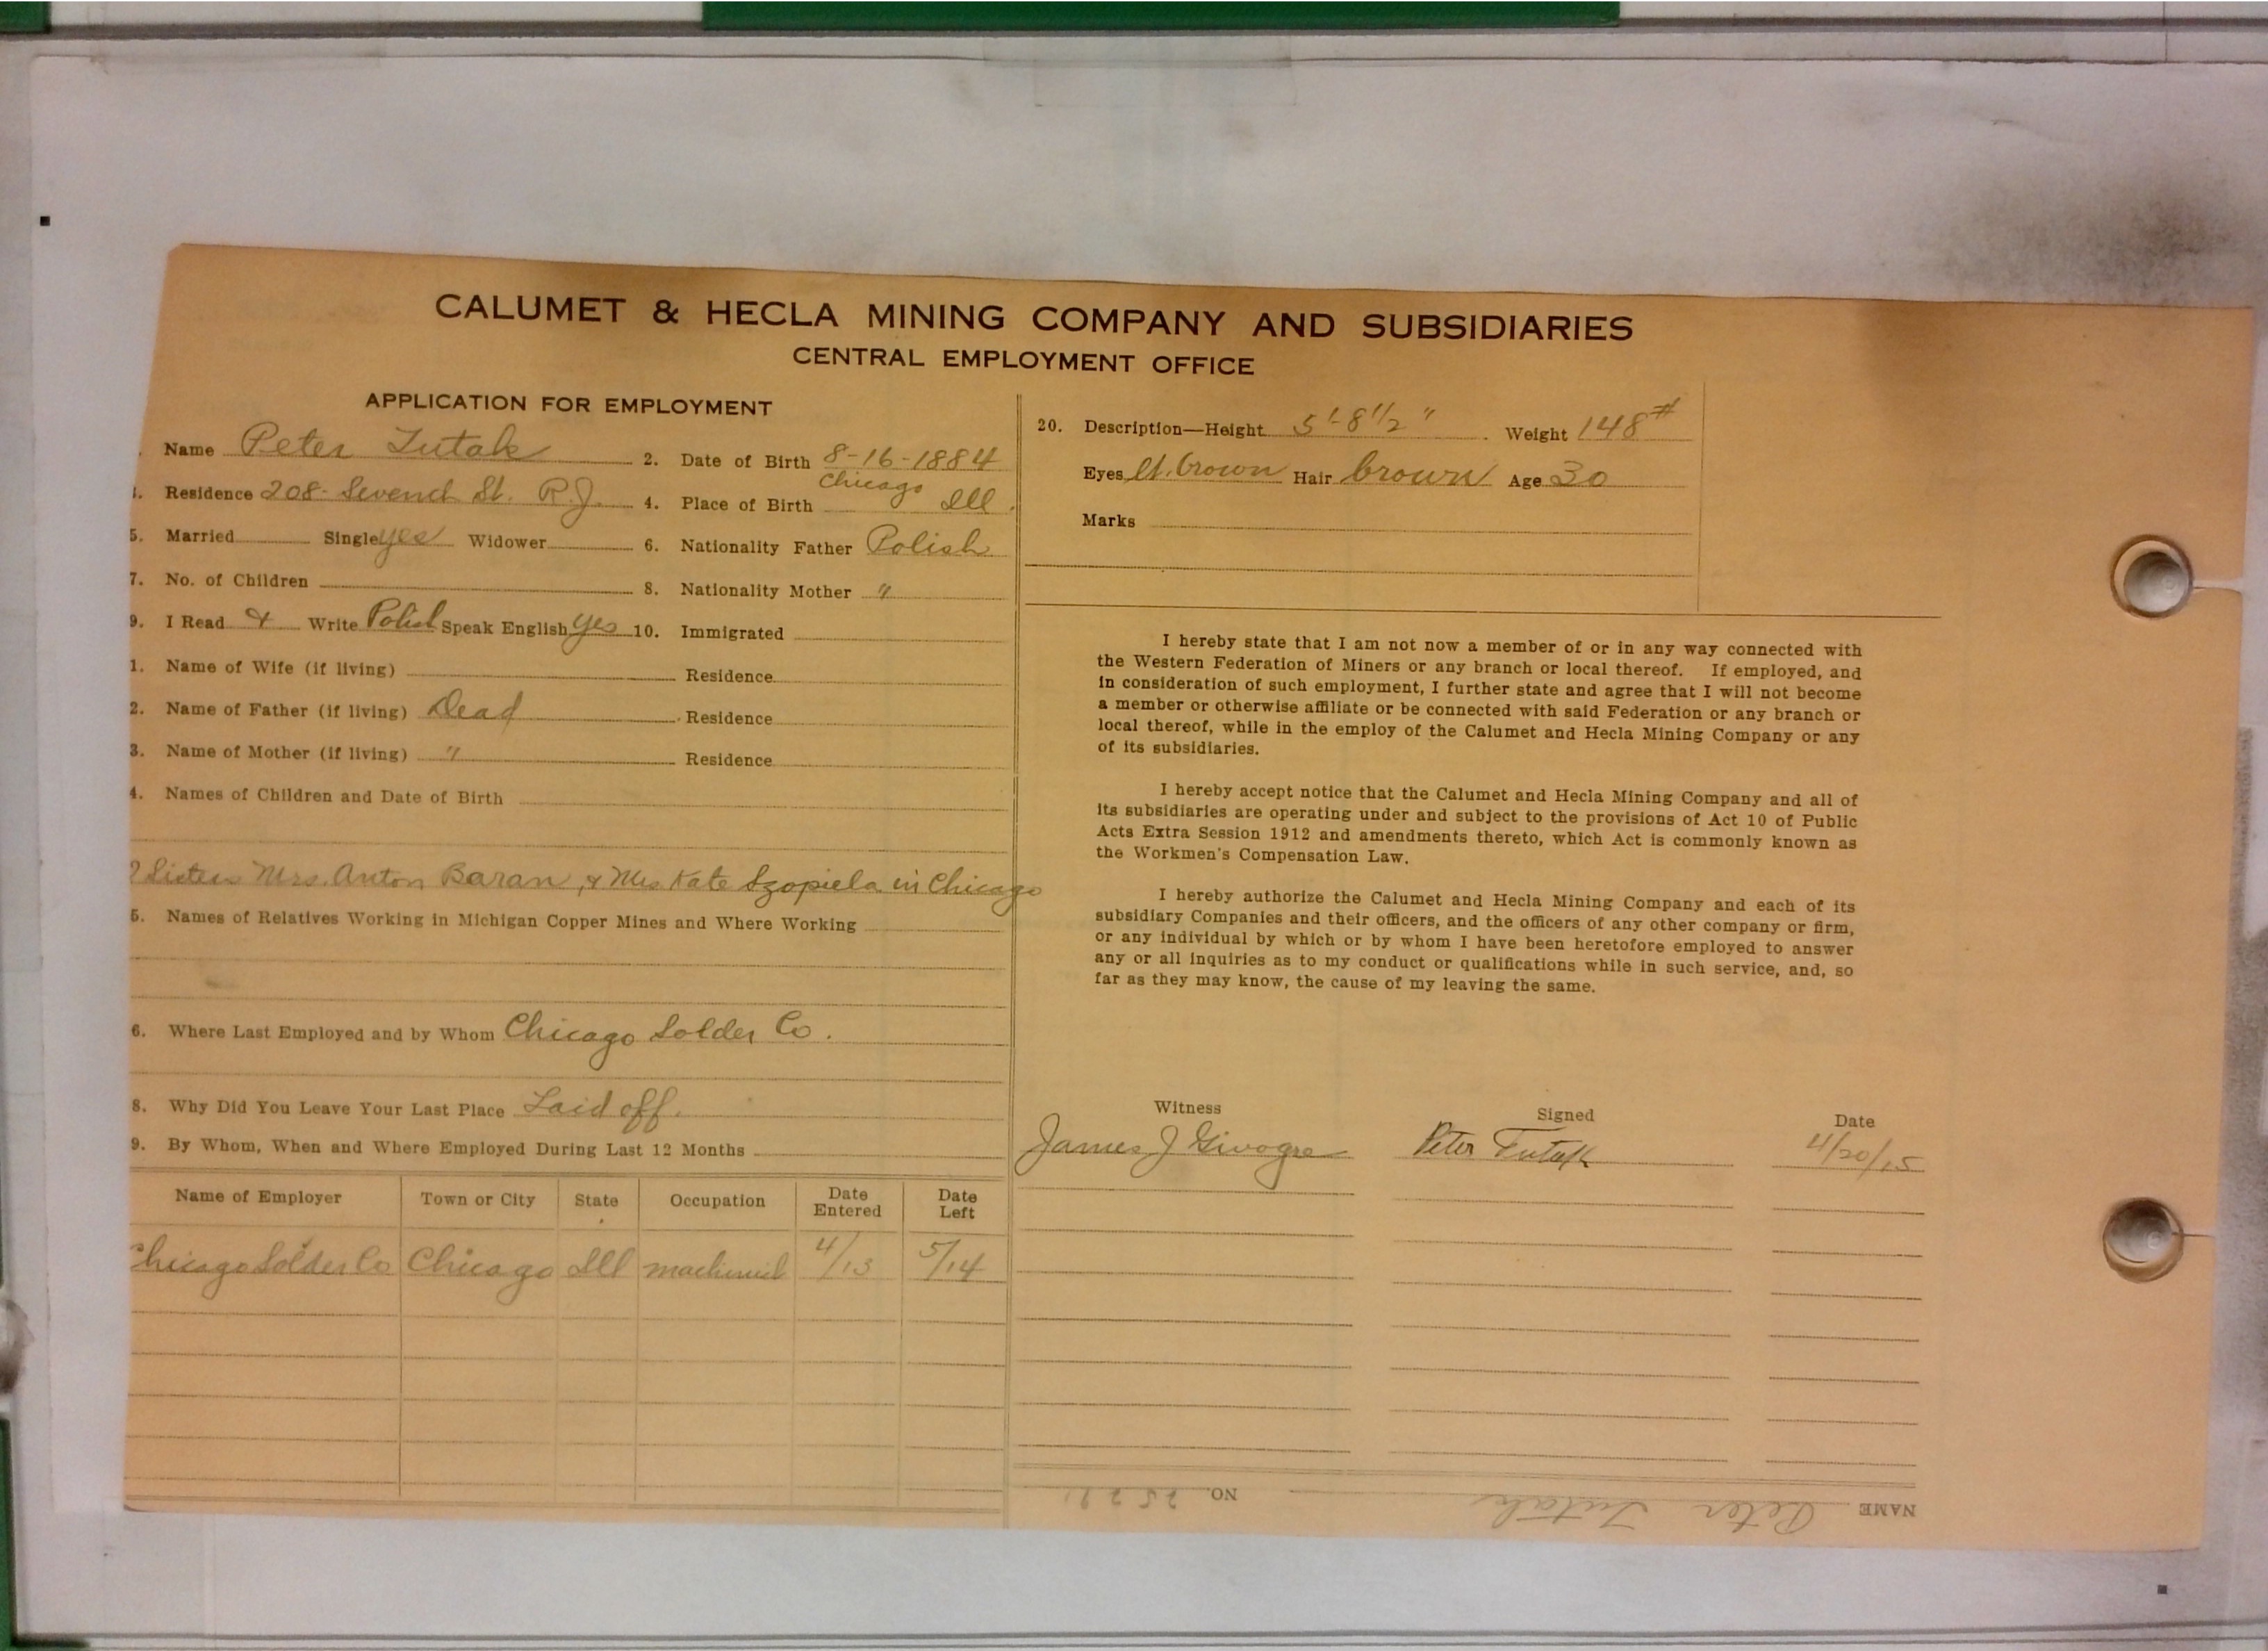 CALUMET & HECLA MINING COMPANY AND SUBSIDIARIES
CENTRAL EMPLOYMENT OFFICE
APPLICATION FOR EMPLOYMENT
Name Peter Tutak 2. Date of Birth 8-16-1884
Residence 208 Seventh St. R.J. 4. Place of Birth Chicago Ill
5. Married Single yes Widower 6. Nationality Father Polish
7. No. of Children 8. Nationality Mother "
9. I Read & Write Polish Speak English yes 10. Immigrated
1. Name of Wife (if living) Residence
2. Name of Father (if living) Dead Residence
3. Name of Mother (if living) " Residence
4. Names of Children and Date of Birth
2 Sisters Mrs. Anton Baran, & Mrs Kate Szopiela in Chicago
5. Names of Relatives Working in Michigan Copper Mines and Where Working
6. Where Last Employed and by Whom Chicago Solder Co.
8. Why Did You Leave Your Last Place Laid off.
9. By Whom, When and Where Employed During Last 12 Months
Name of Employer Town or City State Occupation Date Entered Date Left
Chicago Solder Co Chicago Ill machinist 4/13 5/14
20. Description—Height 5'-8 1/2" Weight 148#
Eyes lt. brown Hair brown Age 30
Marks
I hereby state that I am not now a member of or in any way connected with
the Western Federation of Miners or any branch or local thereof. If employed, and
in consideration of such employment, I further state and agree that I will not become
a member or otherwise affiliate or be connected with said Federation or any branch or
local thereof, while in the employ of the Calumet and Hecla Mining Company or any
of its subsidiaries.
I hereby accept notice that the Calumet and Hecla Mining Company and all of
its subsidiaries are operating under and subject to the provisions of Act 10 of Public
Acts Extra Session 1912 and amendments thereto, which Act is commonly known as
the Workmen's Compensation Law.
I hereby authorize the Calumet and Hecla Mining Company and each of its
subsidiary Companies and their officers, and the officers of any other company or firm,
or any individual by which or by whom I have been heretofore employed to answer
any or all inquiries as to my conduct or qualifications while in such service, and, so
far as they may know, the cause of my leaving the same.
Witness Signed Date
James J Givogre Peter Tutak 4/20/15
NAME Peter Tutak NO.